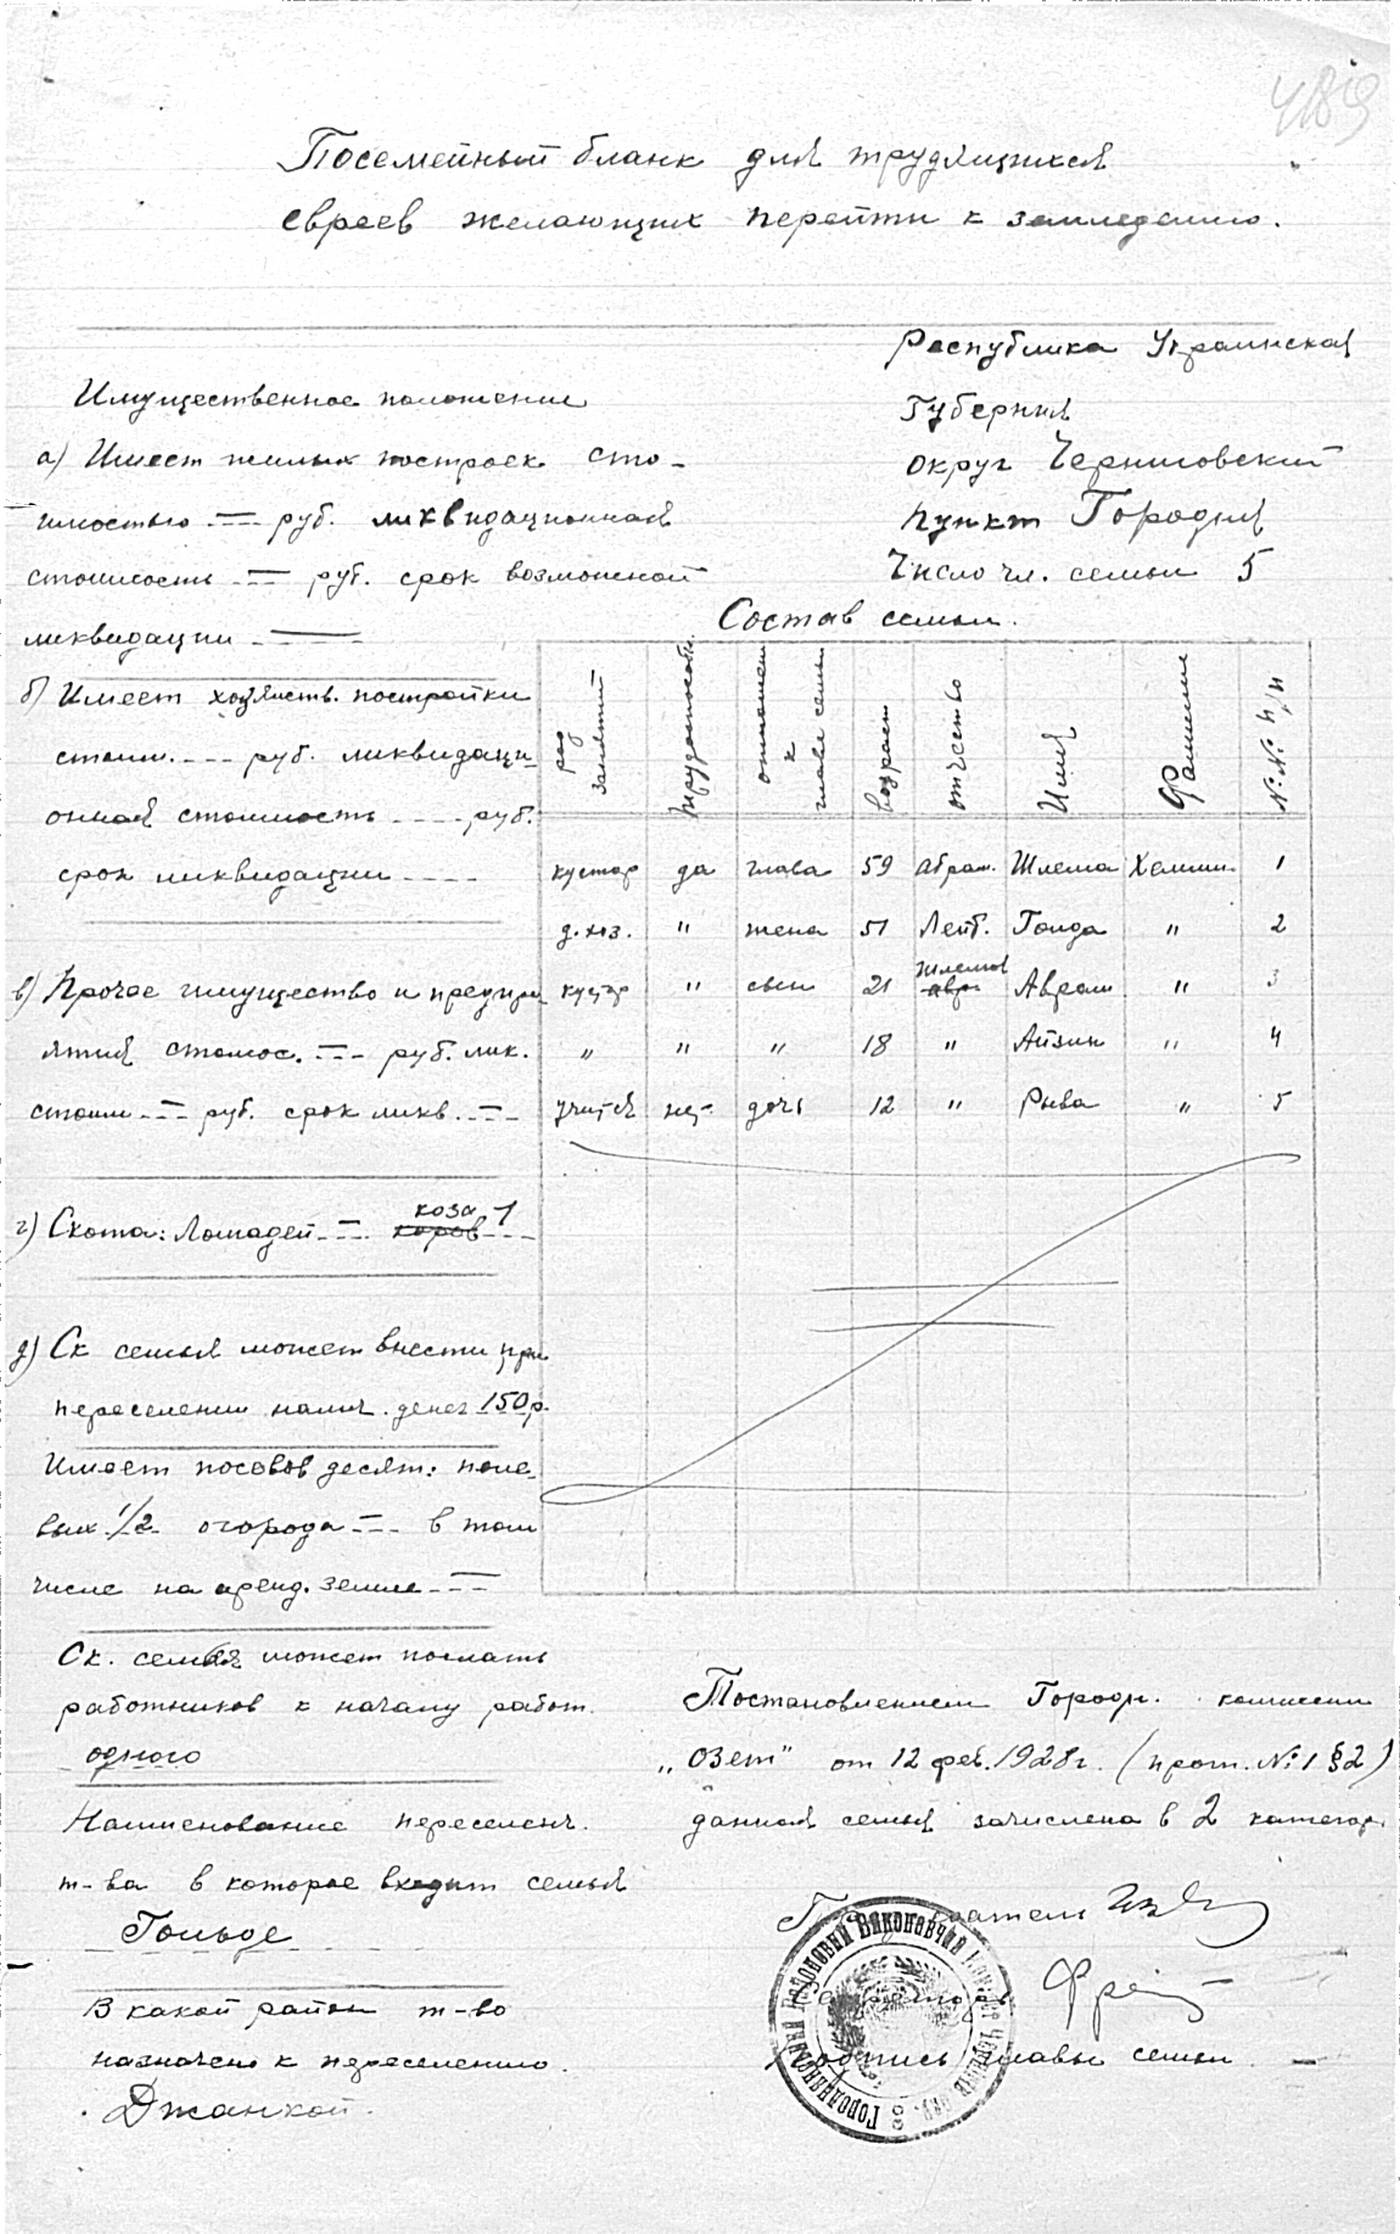 489
Посемейный бланк для трудящихся
евреев желающих перейти к земледелию.
Республика Украинская
Губерния
округ Черниговский
пункт Городня
Число чл. семьи 5
Имущественное положение
а) Имеет жилых построек сто-
имостью руб. ликвидационная
стоимость руб. срок возможной
ликвидации
б) Имеет хозяйств. постройки
стоим. руб. ликвидаци-
онная стоимость руб.
срок ликвидации
в) Прочее имущество и предпри
ятия стоимос. руб. лик.
стоим руб. срок ликв.
г) Скота: Лошадей коза 1
коров
д) Ск семья может внести при
переселении налич. денег 150 р.
Имеет посевов десят: поле-
вых 1/2 огорода в том
числе на аренд. земле
Ск. семья может послать
работников к началу работ.
одного
Наименование переселенч.
т-ва в которое входит семья
Гольде
В какой район т-во
назначено к переселению.
Джанкой.
Состав семьи.
род занятий трудоспособн. отношен к главе семьи возраст отчество Имя Фамилия №№ п/п
кустар да глава 59 Абрам. Шлема Хелмин. 1
д.хоз. " жена 51 Лейб. Голда " 2
кустар " сын 21 Шлемов авр Аврам " 3
" " " 18 " Айзик " 4
учится нет дочь 12 " Рыва " 5
Постановлением Городн. комиссии
„Озет" от 12 фев. 1928 г. (прот. №1 §2)
данная семья зачислена в 2 категор.
подпись главы семьи
Городнянский Районовий Виконавчий